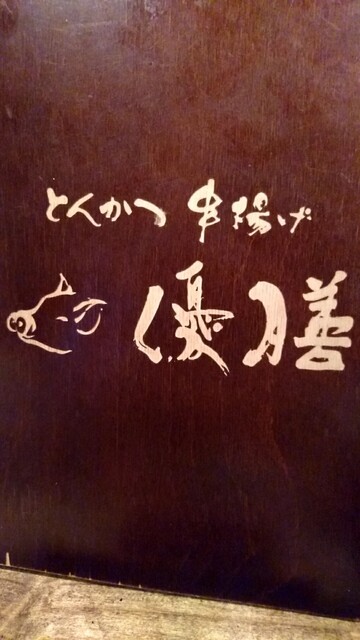 とんかつ 串揚げ
優膳